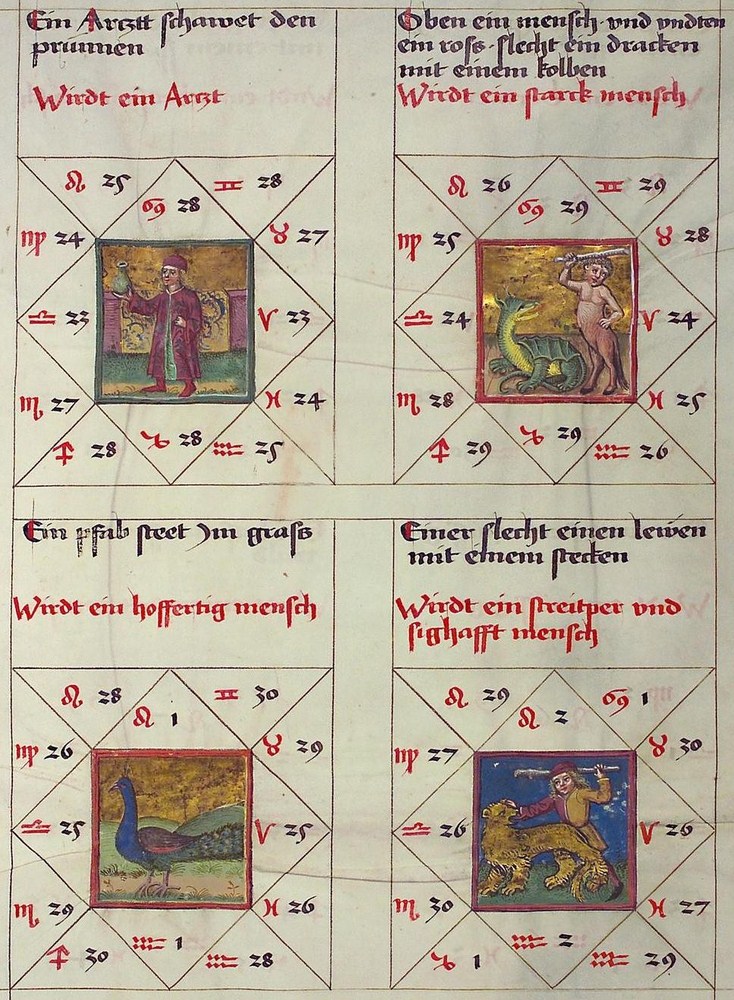 Ein Artzt schawet den
prunnen
Wirdt ein Artzt
♌ 25
♋ 28
♊ 28
♍ 24
♉ 27
♎ 23
♈ 23
♏ 27
♓ 24
♐ 28
♑ 28
♒ 25
Oben ein mensch vnd vndten
ein ross slecht ein dracken
mit einem kolben
Wirdt ein starck mensch
♌ 26
♋ 29
♊ 29
♍ 25
♉ 28
♎ 24
♈ 24
♏ 28
♓ 25
♐ 29
♑ 29
♒ 26
Ein pfab steet Jm grass
Wirdt ein hoffertig mensch
♌ 28
♌ 1
♊ 30
♍ 26
♉ 29
♎ 25
♈ 25
♏ 29
♓ 26
♐ 30
♒ 1
♒ 28
Einer slecht einen lewen
mit einem stecken
Wirdt ein streitper vnd
sighafft mensch
♌ 29
♌ 2
♋ 1
♍ 27
♉ 30
♎ 26
♈ 26
♏ 30
♓ 27
♑ 1
♒ 2
♒ 29